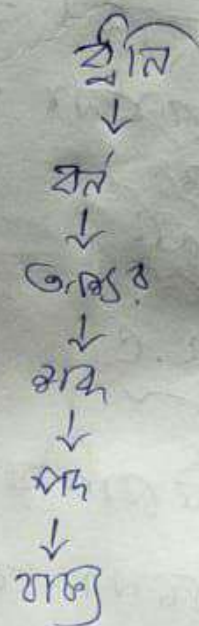 ধ্বনি
↓
বর্ন
↓
অক্ষর
↓
শব্দ
↓
পদ
↓
বাক্য